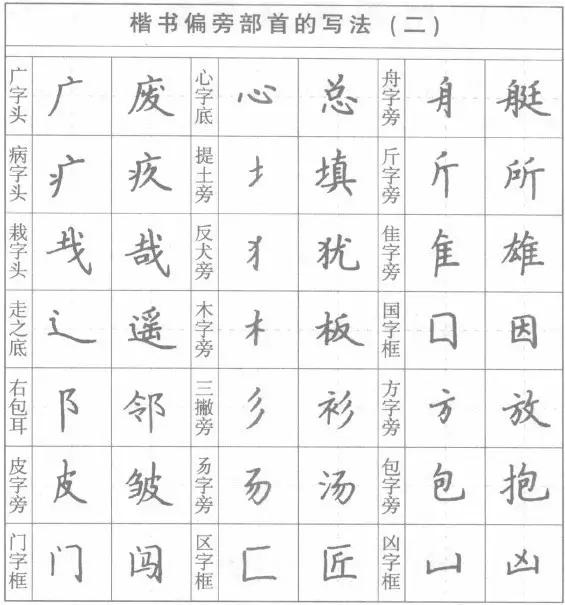 楷书偏旁部首的写法（二）
广字头 广 废 心字底 心 总 舟字旁 舟 艇
病字头 疒 疾 提土旁 土 填 斤字旁 斤 所
栽字头 𢦏 哉 反犬旁 犭 犹 隹字旁 隹 雄
走之底 辶 遥 木字旁 木 板 国字框 囗 因
右包耳 阝 邻 三撇旁 彡 衫 方字旁 方 放
皮字旁 皮 皱 𠃓字旁 𠃓 汤 包字旁 包 抱
门字框 门 闯 区字框 匚 匠 凶字框 凵 凶